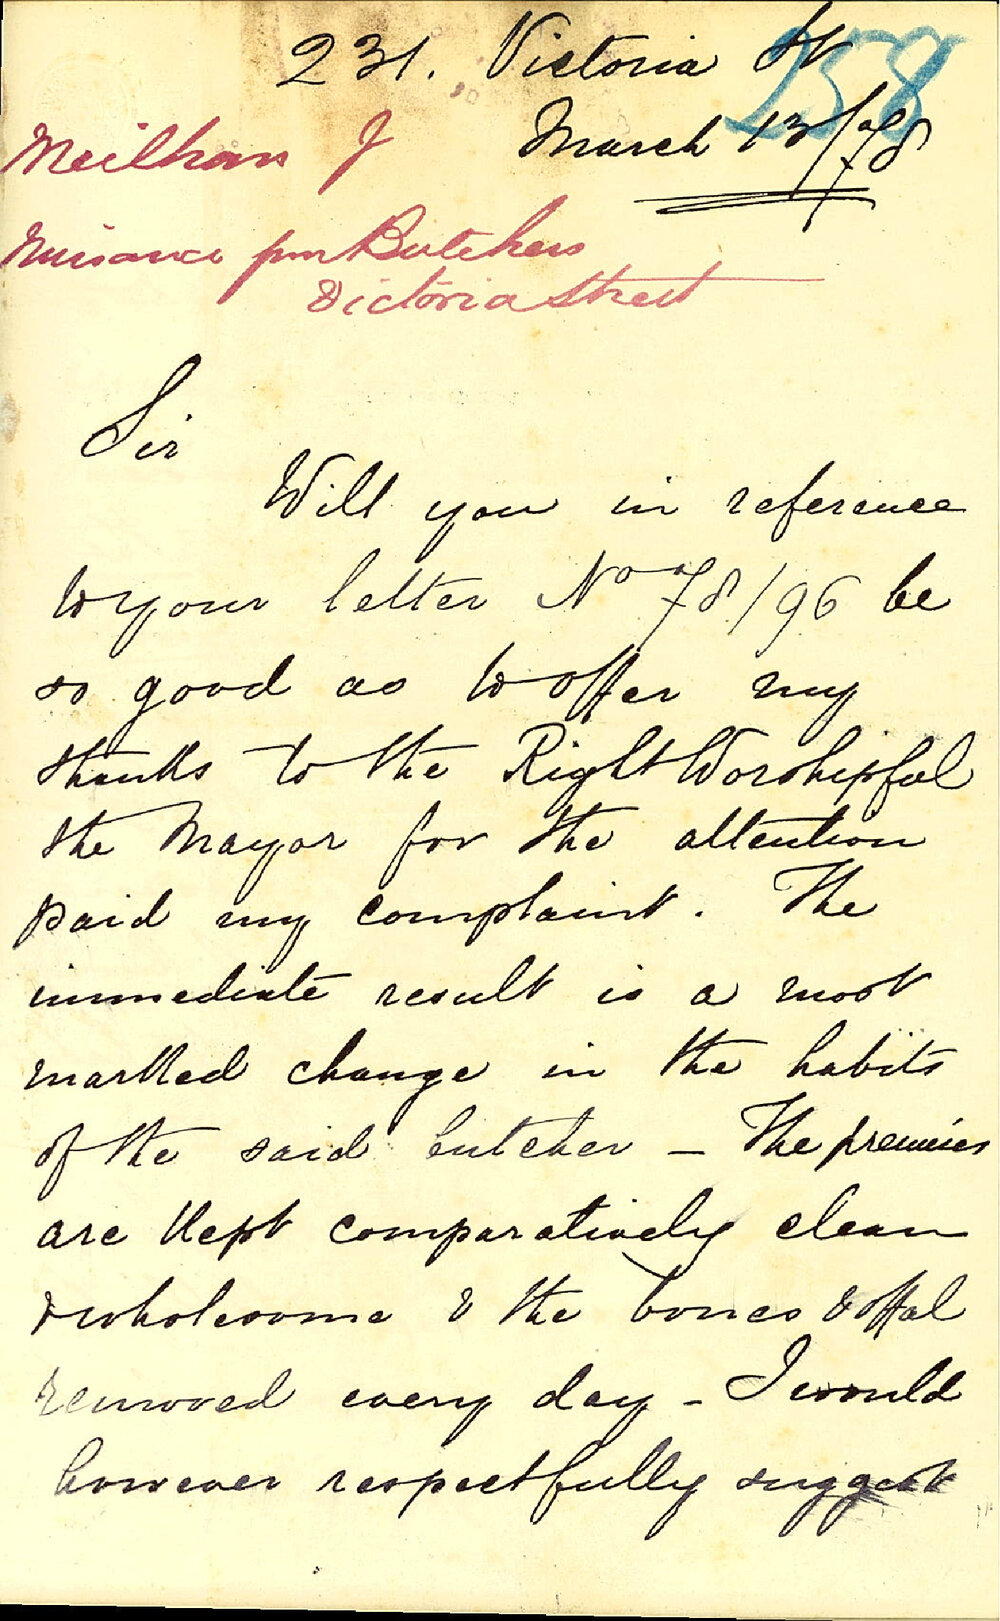 231. Victoria St
258
March 13/78
Meilhan J
Nuisance from Butchers
Victoria Street
Sir
Will you in reference
to your letter No 78/96 be
so good as to offer my
thanks to the Right Worshipful
the Mayor for the attention
paid my complaint. The
immediate result is a most
marked change in the habits
of the said butcher - The premises
are kept comparatively clean
& wholesome & the bones & offal
removed every day - I would
however respectfully suggest